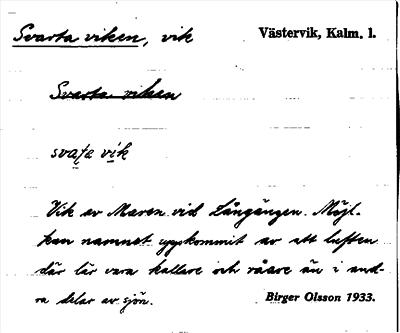 Svarta viken, vik Västervik, Kalm. l.
Svarta viken
svaṭa vik
Vik av Maren vid Långängen. Möjl.
kan namnet uppkommit av att luften
där lär vara kallare och råare än i and-
ra delar av sjön. Birger Olsson 1933.